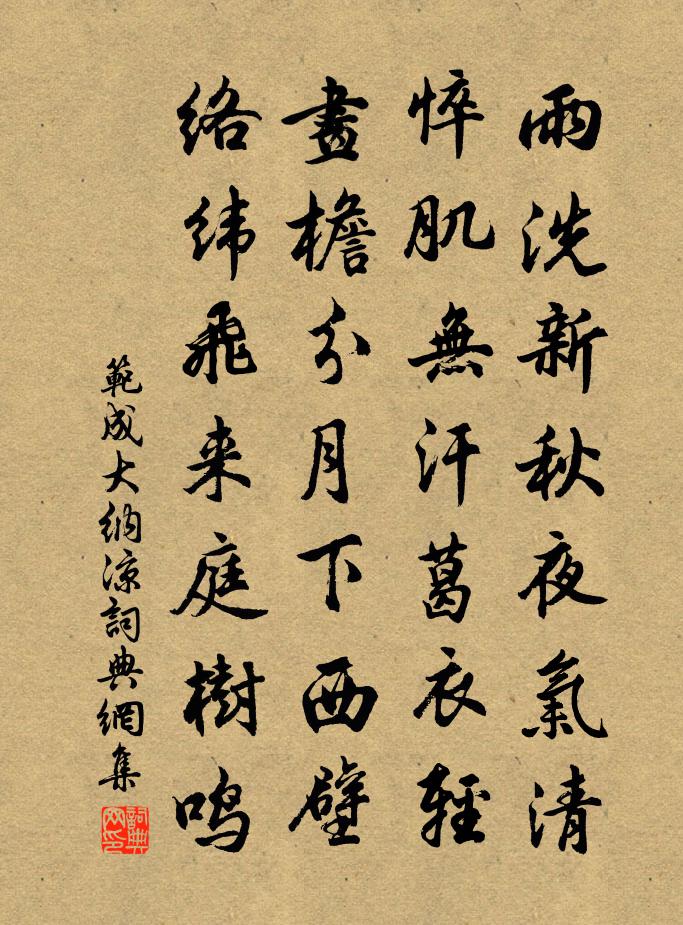 雨洗新秋夜氣清
悴肌無汗葛衣輕
畫檐分月下西壁
絡緯飛来庭樹鳴
範成大納涼詞典網集
詞典网印